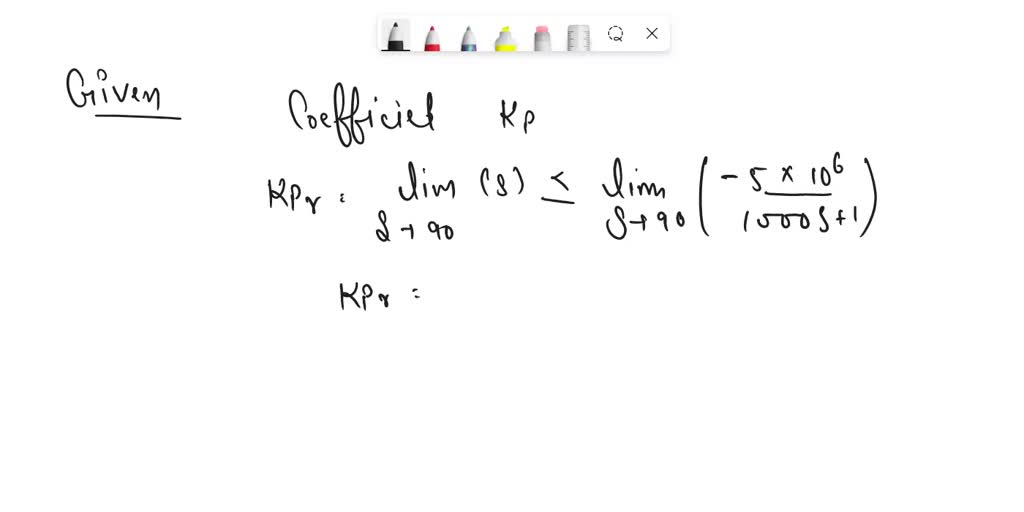 Given
Coefficiet Kp
KPr = lim S→90 (s) ≤ lim S→90 (-5 × 10^6 / 1500S+1)
KPr =